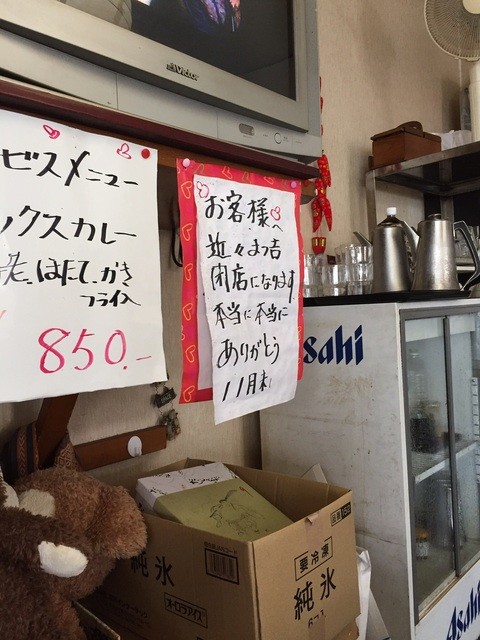 Victor
ビスメニュー
ックスカレー
ほたて、かき
フライ入
850.-
お客様へ
近々まつ吉
閉店になります
本当に本当に
ありがとう
11月末
Asahi
純氷
オーロラアイス
要冷凍
純氷
6コ入
Asahi